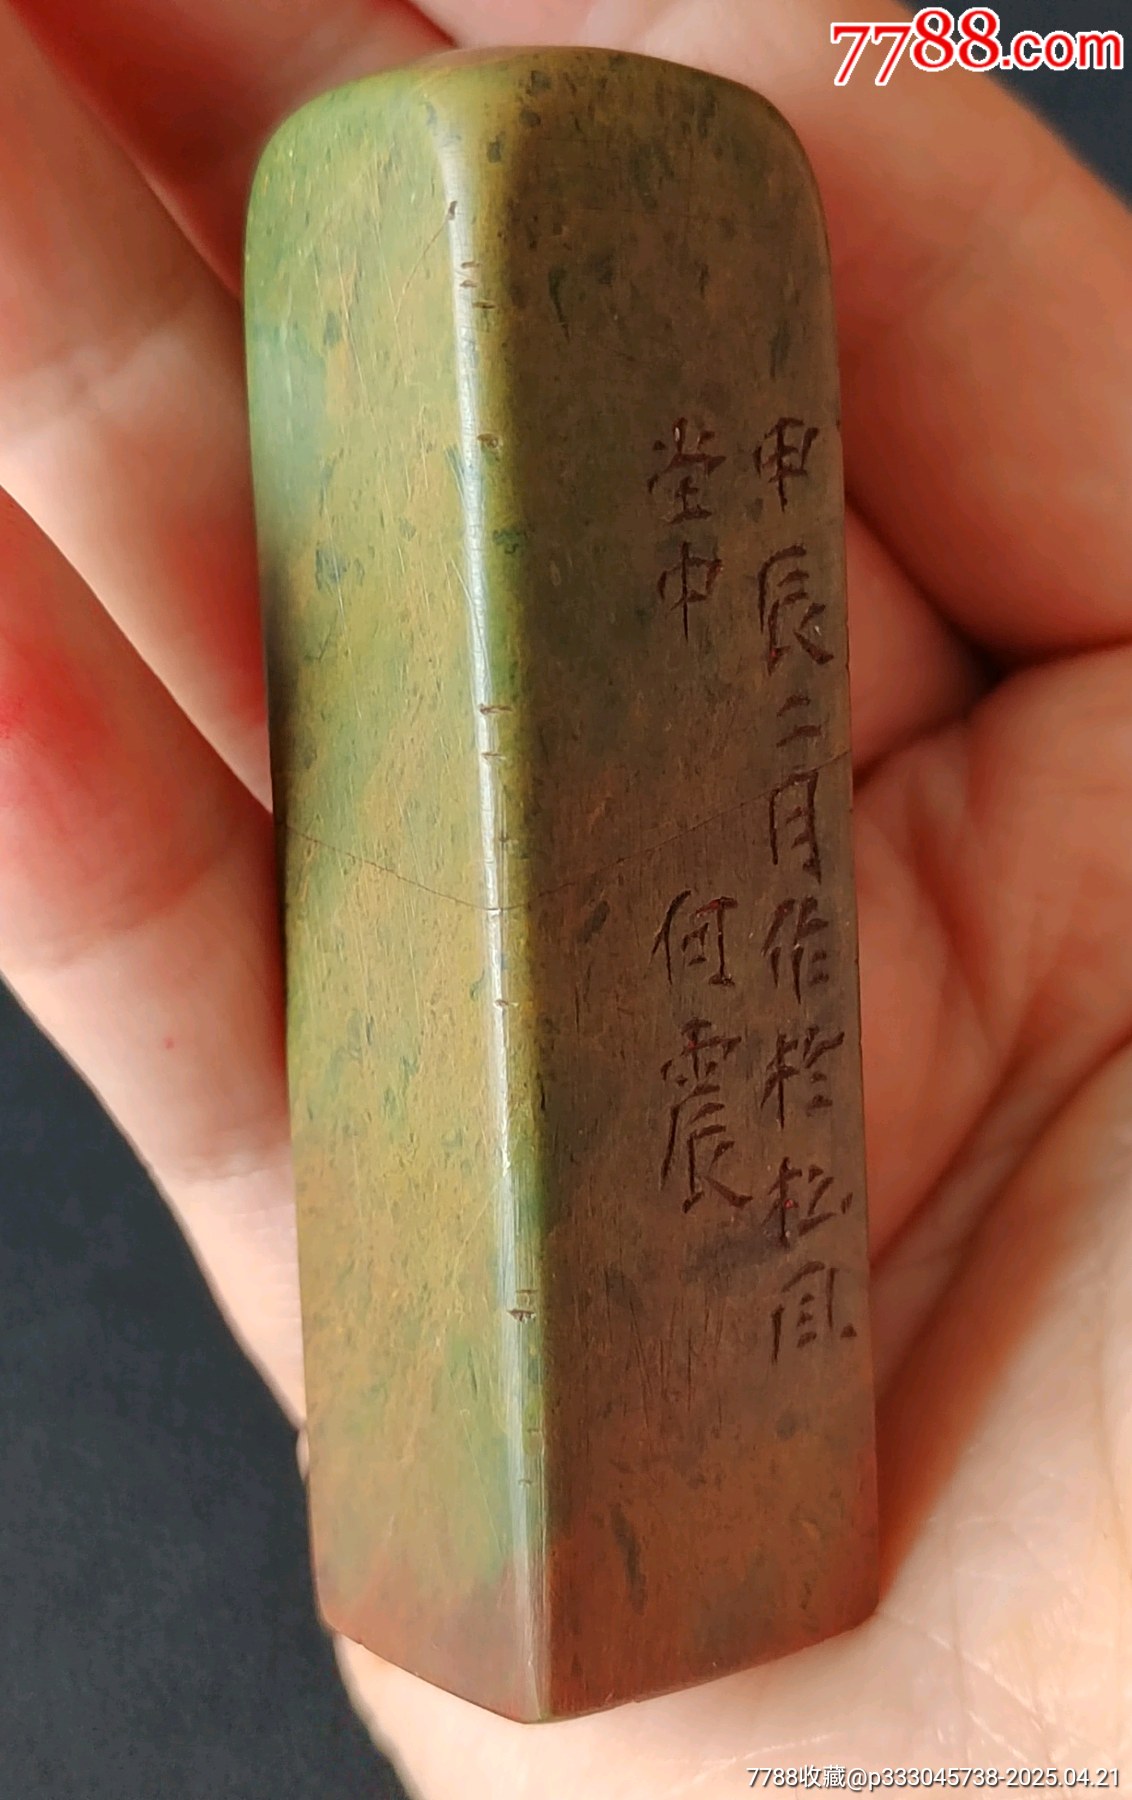 7788.com
甲辰二月作於松風
堂中 何震
7788收藏@p333045738-2025.04.21